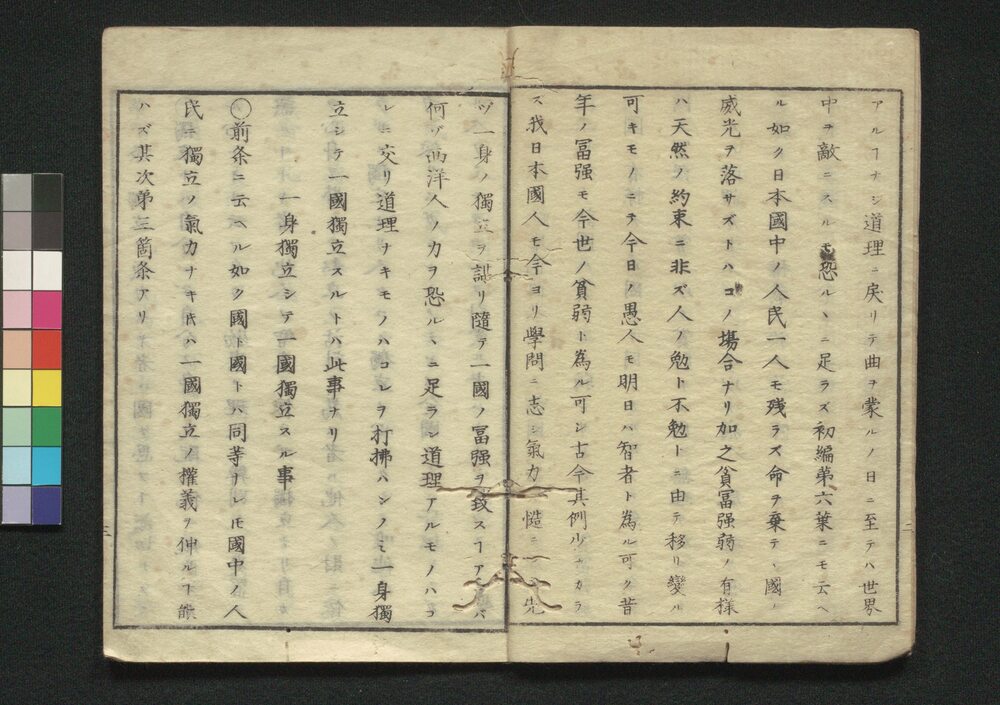 アルヿナシ道理ニ戻リテ曲ヲ蒙ルノ日ニ至テハ世界
中ヲ敵ニスルモ恐ルヽニ足ラズ初編第六葉ニモ云ヘ
ル如ク日本國中ノ人民一人モ残ラズ命ヲ棄テヽ國ノ
威光ヲ落サズトハコノ塲合ナリ加之貧冨强弱ノ有樣
ハ天然ノ約束ニ非ズ人ノ勉ト不勉トニ由テ移リ變ル
可キモノニテ今日ノ愚人モ明日ハ智者ト為ル可ク昔
年ノ冨强モ今世ノ貧弱ト為ル可シ古今其例少ナカラ
ズ我日本國人モ今ヨリ學問ニ志シ氣力ヲ慥ニシテ先
ヅ一身ノ獨立ヲ謀リ隨テ一國ノ冨强ヲ致スヿアラバ
何ゾ西洋人ノ力ヲ恐ルヽニ足ラン道理アルモノハコ
レニ交リ道理ナキモノハコレヲ打拂ハンノミ一身獨
立シテ一國獨立スルトハ此事ナリ
一身獨立シテ一國獨立スル事
○前条ニ云ヘル如ク國ト國トハ同等ナレ𪜈國中ノ人
民ニ獨立ノ氣力ナキ𪜈ハ一國獨立ノ權義ヲ伸ルヿ能
ハズ其次第三箇条アリ